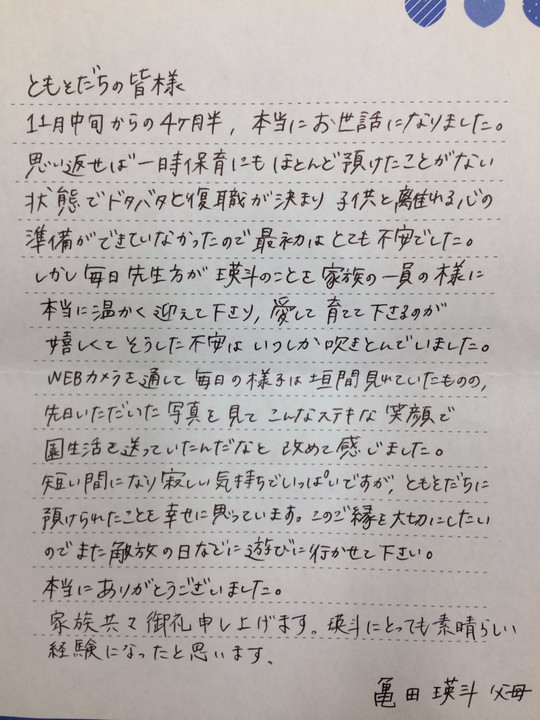 ともそだちの皆様
11月中旬からの4ヶ月半，本当にお世話になりました。
思い返せば一時保育にもほとんど預けたことがない
状態でドタバタと復職が決まり 子供と離れる心の
準備ができていなかったので最初はとても不安でした。
しかし毎日先生方が瑛斗のことを家族の一員の様に
本当に温かく迎えて下さり，愛して育てて下さるのが
嬉しくてそうした不安はいつしか吹きとんでいました。
WEBカメラを通して毎日の様子は垣間見れていたものの，
先日いただいた写真を見てこんなステキな笑顔で
園生活を送っていたんだなと改めて感じました。
短い間になり寂しい気持ちでいっぱいですが，ともそだちに
預けられたことを幸せに思っています。このご縁を大切にしたい
のでまた敵放の日などに遊びに行かせて下さい。
本当にありがとうございました。
家族共々御礼申し上げます。瑛斗にとっても素晴らしい
経験になったと思います。
亀田 瑛斗 父母